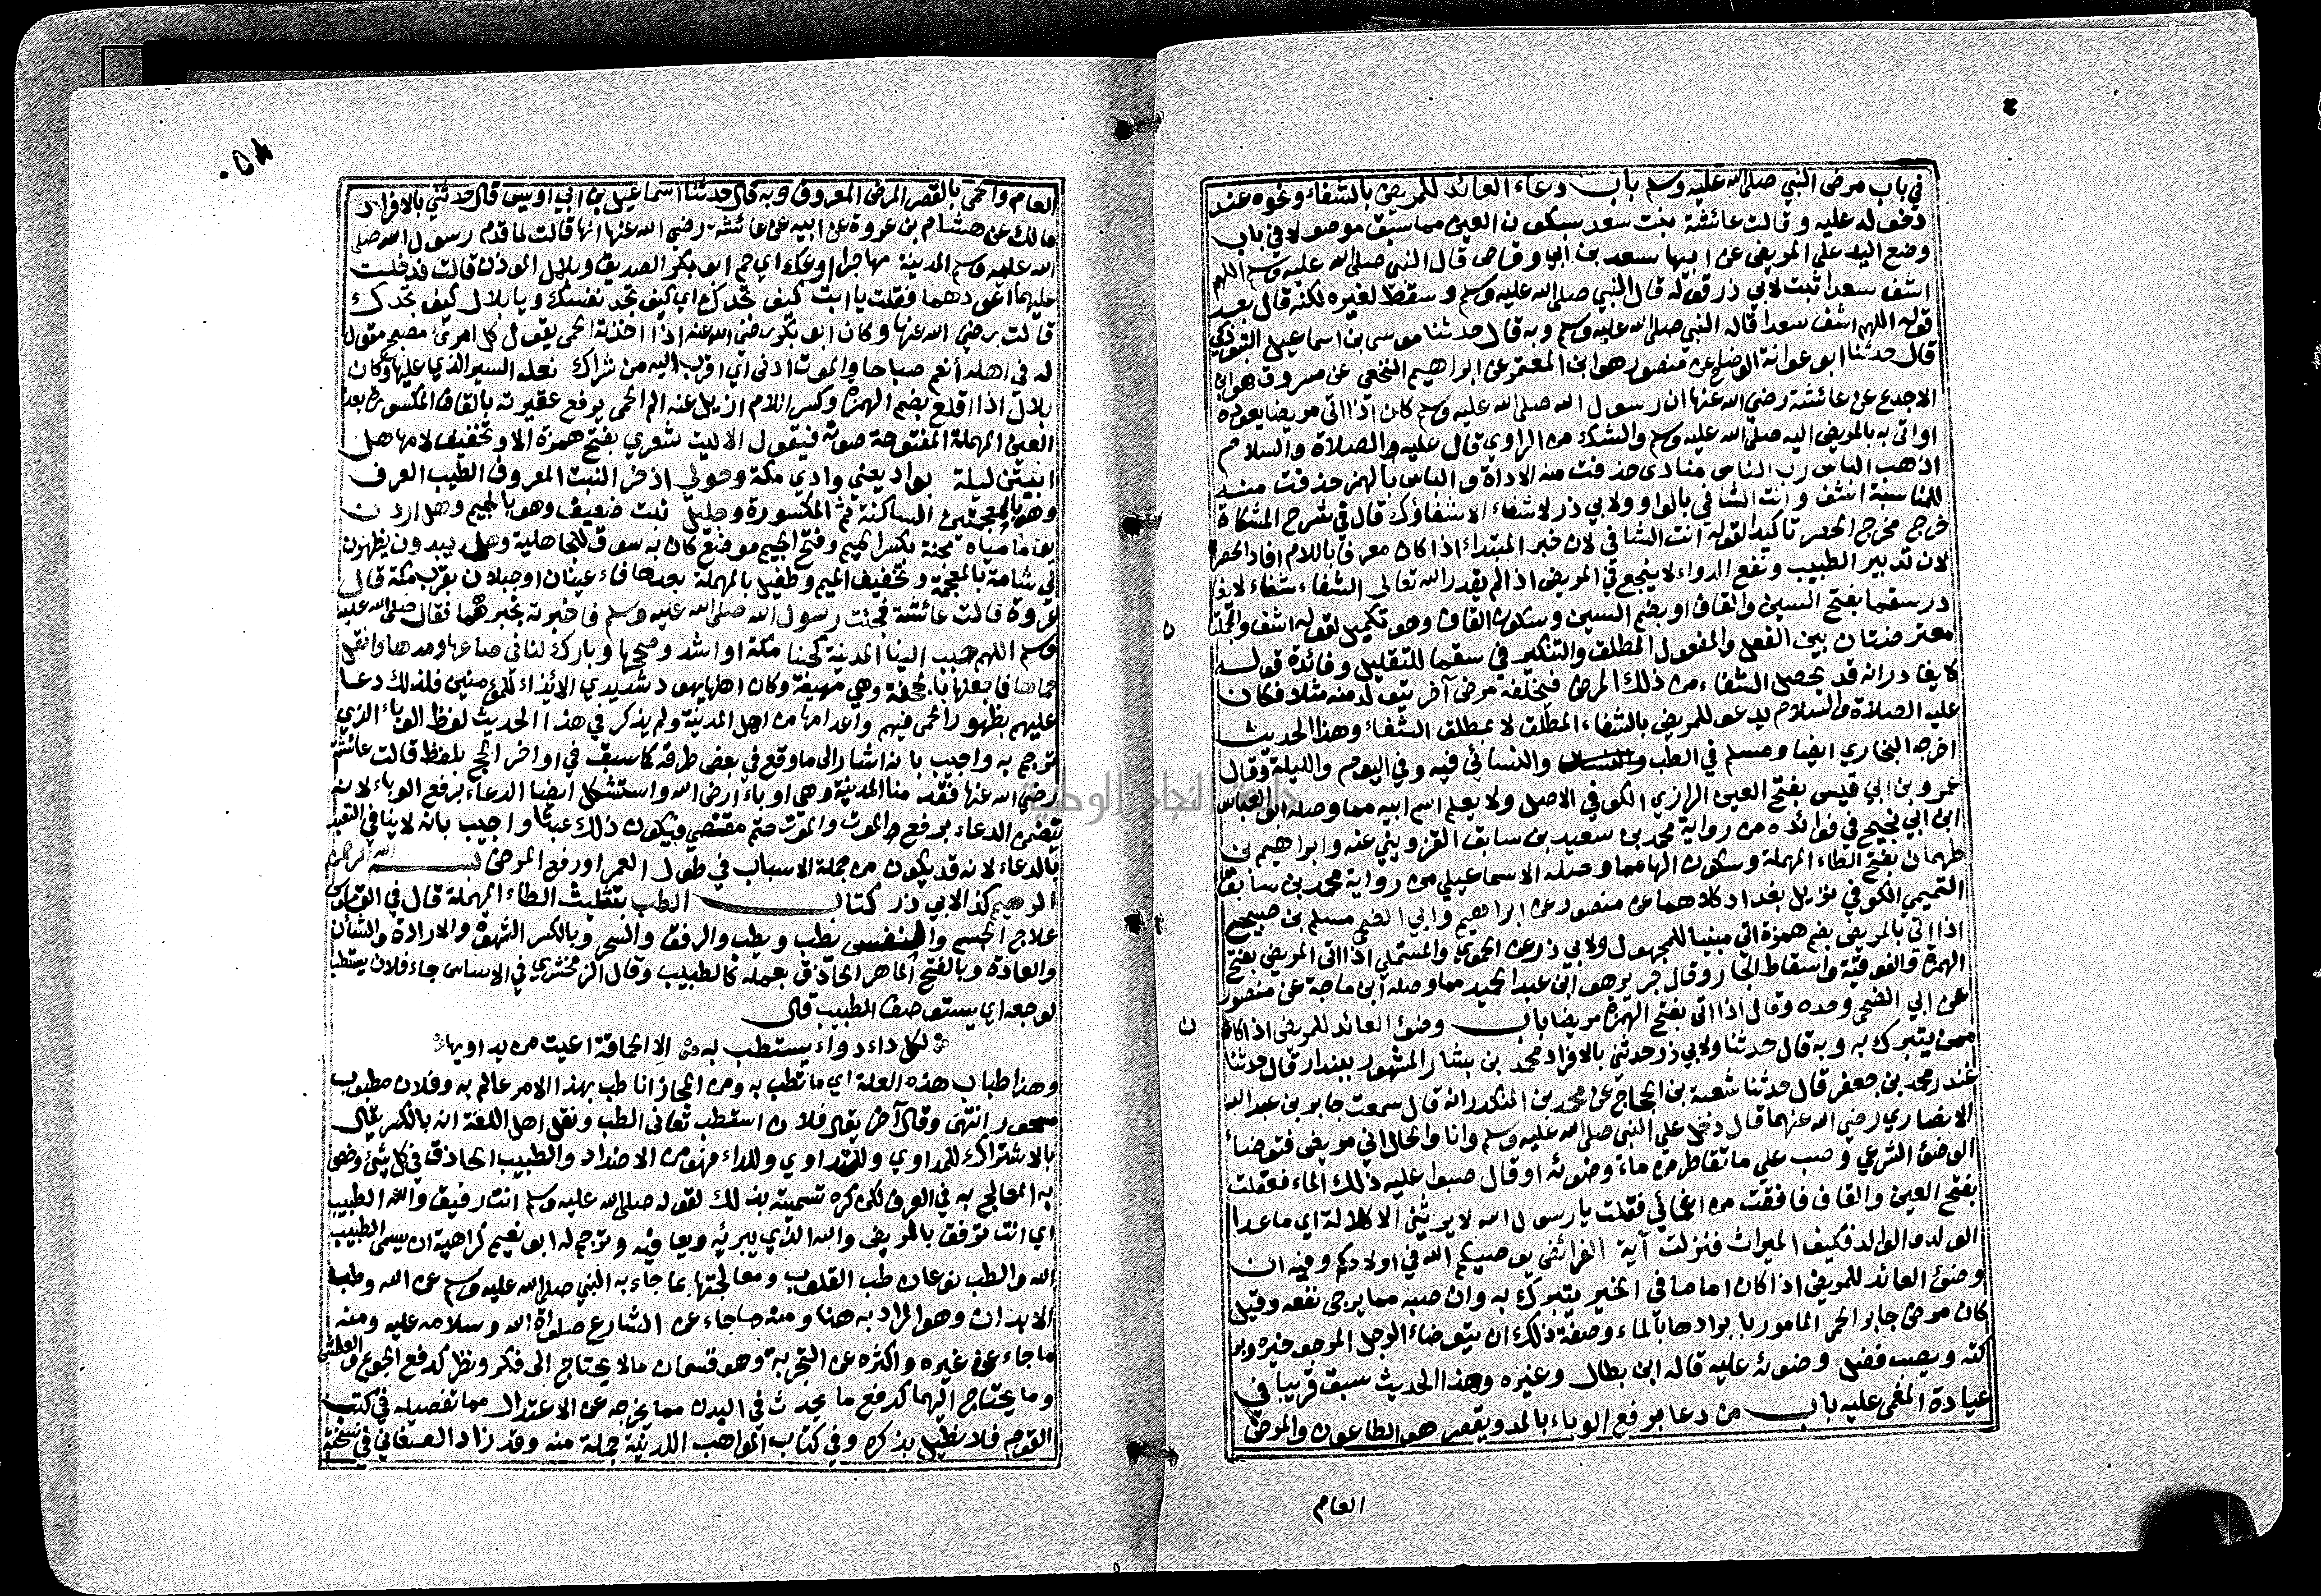 في باب مرض النبي صلى الله عليه وسلم باب دعاء العائد للمريض بالشفاء ونحوه عند
دخوله عليه وقالت عائشة بنت سعد بسكون العين مما سبق موصولا في باب
وضع اليد على المريض عن ابيها سعد بن ابي وقاص قال النبي صلى الله عليه وسلم اللهم
اشف سعدا ثبت لابي ذر قوله قال النبي صلى الله عليه وسلم وسقط لغيره لكنه قال بعد
قوله اللهم اشف سعدا قاله النبي صلى الله عليه وسلم وبه قال حدثنا موسى بن اسماعيل التبوذكي
قال حدثنا ابو عوانة الوضاح عن منصور هو ابن المعتمر عن ابراهيم النخعي عن مسروق هو ابن
الاجدع عن عائشة رضي الله عنها ان رسول الله صلى الله عليه وسلم كان اذا اتى مريضا يعوده
او اتي به بالمريض اليه صلى الله عليه وسلم والشك من الراوي قال عليه الصلاة والسلام
اذهب الباس رب الناس منادى حذفت منه الاداة والباس بالهمز حذفت منه
للمناسبة اشف وانت الشافي بالواو ولابي ذر لا شفاء الا شفاؤك قال في شرح المشكاة
خرج مخرج الحصر تاكيدا لقوله انت الشافي لان خبر المبتداء اذا كان معرفا باللام افاد الحصر
لان تدبير الطبيب ونفع الدواء لا ينجع في المريض اذا لم يقدر الله تعالى الشفاء شفاء لا يغا
در سقما بفتح السين والقاف او بضم السين وسكون القاف وهو تكميل لقوله اشف والجملتا ن
معترضتان بين الفعل والمفعول المطلق والتنكير في سقما للتقليل وفائدة قوله
لا يغادر انه قد يحصل الشفاء من ذلك المرض فيخلفه مرض آخر يتولد منه مثلا فكان
عليه الصلاة والسلام يدعو للمريض بالشفاء المطلق لا بمطلق الشفاء وهذا الحديث
اخرجه البخاري ايضا ومسلم في الطب والنسائي فيه وفي اليوم والليلة وقال
عمرو بن ابي قيس بفتح العين الرازي الكوفي الاصل ولا يعلم اسم ابيه مما وصله ابو العباس
ابن ابي نجيح في فوائده من رواية محمد بن سعيد بن سابق القزويني عنه وابراهيم بن
طهمان بفتح الطاء المهملة وسكون الهاء مما وصله الاسماعيلي من رواية محمد بن سابق
التميمي الكوفي نزيل بغداد كلاهما عن منصور عن ابراهيم وابي الضحى مسلم بن صبيح
اذا اتي بالمريض بضم همزة اتي مبنيا للمجهول ولابي ذر عن الحموي والمستملي اذا اتى المريض بفتح
الهمزة والفوقية واسقاط الجار وقال جرير هو ابن عبد الحميد مما وصله ابن ماجة عن منصور
عن ابي الضحى وحده وقال اذا اتى بفتح الهمزة مريضا باب وضوء العائد للمريض اذا كان ن
ممن يتبرك به وبه قال حدثنا ولابي ذر حدثني بالافراد محمد بن بشار المشهور ببندار قال حدثنا
غندر محمد بن جعفر قال حدثنا شعبة بن الحجاج عن محمد بن المنكدر انه قال سمعت جابر بن عبد الله
الانصاري رضي الله عنهما قال دخل علي النبي صلى الله عليه وسلم وانا والحال اني مريض فتوضاء
الوضوء الشرعي وصب علي ما تقاطر من ماء وضوئه او قال صبوا عليه ذلك الماء فعقلت
بفتح العين والقاف فافقت من اغمائي فقلت يا رسول الله لا يرثني الا كلالة اي ما عدا
الولد والوالد فكيف الميراث فنزلت آية الفرائض يوصيكم الله في اولادكم وفيه ان
وضوء العائد للمريض اذا كان اماما في الخير يتبرك به وان صبه مما يرجى نفعه وقيل
كان مرض جابر الحمى المامور بابرادها بالماء وصفة ذلك ان يتوضاء الرجل المرجو خيره وبر
كته ويصب فضل وضوئه عليه قاله ابن بطال وغيره وهذا الحديث سبق قريبا في
عيادة المغمى عليه باب من دعا برفع الوباء بالمد ويقصر هو الطاعون والمرض
العام
العام والحمى بالقصر المرض المعروف وبه قال حدثنا اسماعيل بن ابي اويس قال حدثني بالافراد
مالك عن هشام بن عروة عن ابيه عن عائشة رضي الله عنها انها قالت لما قدم رسول الله صلى
الله عليه وسلم المدينة مهاجرا وعك اي حم ابو بكر الصديق وبلال الموذن قالت فدخلت
عليهما اعودهما فقلت يا ابت كيف تجدك اي كيف تجد نفسك ويا بلال كيف تجدك
قالت رضي الله عنها وكان ابو بكر رضي الله عنه اذا اخذته الحمى يقول كل امرئ مصبح مقول
له في اهله أنعم صباحا والموت ادنى اي اقرب اليه من شراك نعله السير الذي عليها وكان
بلال اذا اقلع بضم الهمزة وكسر اللام ازيل عنه الم الحمى يرفع عقيرته بالقاف المكسورة بعد
العين المهملة المفتوحة صوته فيقول الا ليت شعري بفتح همزة الا وتخفيف لامها هل
ابيتن ليلة بواد يعني وادي مكة وحولي اذخر النبت المعروف الطيب العرف
وهو بالمعجمتين الساكنة ثم المكسورة وجليل نبت ضعيف وهو بالجيم وهل اردن
يوما مياه مجنة بكسر الجيم وفتح الجيم موضع كان به سوق للجاهلية وهل يبدون يظهرن
لي شامة بالمعجمة وتخفيف الميم وطفيل بالمهملة بعدها فاء عينان او جبلان بقرب مكة قال
عروة قالت عائشة فجئت رسول الله صلى الله عليه وسلم فاخبرته بخبرهما فقال صلى الله عليه
وسلم اللهم حبب الينا المدينة كحبنا مكة او اشد وصححها وبارك لنا في صاعها ومدها وانقل
حماها فاجعلها بالجحفة وهي مهيعة وكان اهلها يهود شديدي الايذاء للمؤمنين فلذلك دعا
عليهم بظهور الحمى فيهم واعدامها من اهل المدينة ولم يذكر في هذا الحديث لفظ الوباء الذي
ترجم به واجيب بانه اشار الى ما وقع في بعض طرقه كما سبق في اواخر الحج بلفظ قالت عائشة
رضي الله عنها فقدمنا المدينة وهي اوباء ارض الله واستشكل ايضا الدعاء برفع الوباء لانه
يتضمن الدعاء برفع الموت والموت حتم مقضي فيكون ذلك عبثا واجيب بانه لا ينافي التعبد
بالدعاء لانه قد يكون من جملة الاسباب في طول العمر او رفع المرض بسم الله الرحمن
الرحيم كذا لابي ذر كتاب الطب بتثليث الطاء المهملة قال في القاموس
علاج الجسم والنفس يطب ويطب والرفق والسحر وبالكسر الشهوة والارادة والشأن
والعادة وبالفتح الماهر الحاذق بعمله كالطبيب وقال الزمخشري في الاساس جاء فلان يستطب
لوجعه اي يستوصف الطبيب قال
لكل داء دواء يستطب به الا الحماقة اعيت من يداويها
وهذا طباب هذه العلة اي ما تطب به ومن المجاز انا طب بهذا الامر عالم به وفلان مطبوب
مسحور انتهى وقال آخر يقال فلان استطب تعانى الطب ونقل اهل اللغة انه بالكسر يقال
بالاشتراك للمداوي وللتداوي وللداء فهو من الاضداد والطبيب الحاذق في كل شئ وخص
به المعالج به في العرف لكن كره تسميته بذلك لقوله صلى الله عليه وسلم انت رفيق والله الطبيب
اي انت ترفق بالمريض والله الذي يبرئه ويعافيه وترجم له ابو نعيم كراهية ان يسمى الطبيب
الله والطب نوعان طب القلوب ومعالجتها بما جاء به النبي صلى الله عليه وسلم عن الله وطب
الابدان وهو المراد به هنا ومنه ما جاء عن الشارع صلواة الله وسلامه عليه ومنه
ما جاء عن غيره واكثره عن التجربة وهو قسمان ما لا يحتاج الى فكر ونظر كدفع الجوع والعطش
وما يحتاج اليهما كدفع ما يحدث في البدن مما يخرجه عن الاعتدال مما تفصيله في كتب
القوم فلا نطيل بذكره وفي كتاب المواهب اللدنية جملة منه وقد زاد الصغاني في نسخته
جامعة النجاح الوطنية